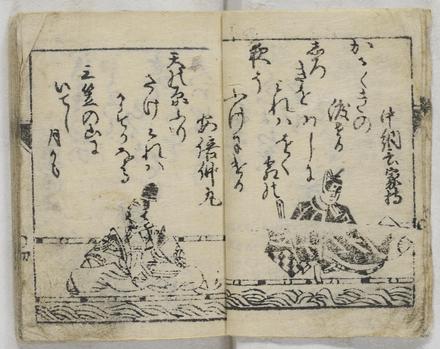 中納言家持
かさゝきの
渡せる
はしに
をく霜の
しろ
きを
みれは
夜そ
ふけにける
安倍仲丸
天の原ふり
さけみれは
かすかなる
三笠の山に
いてし月かも